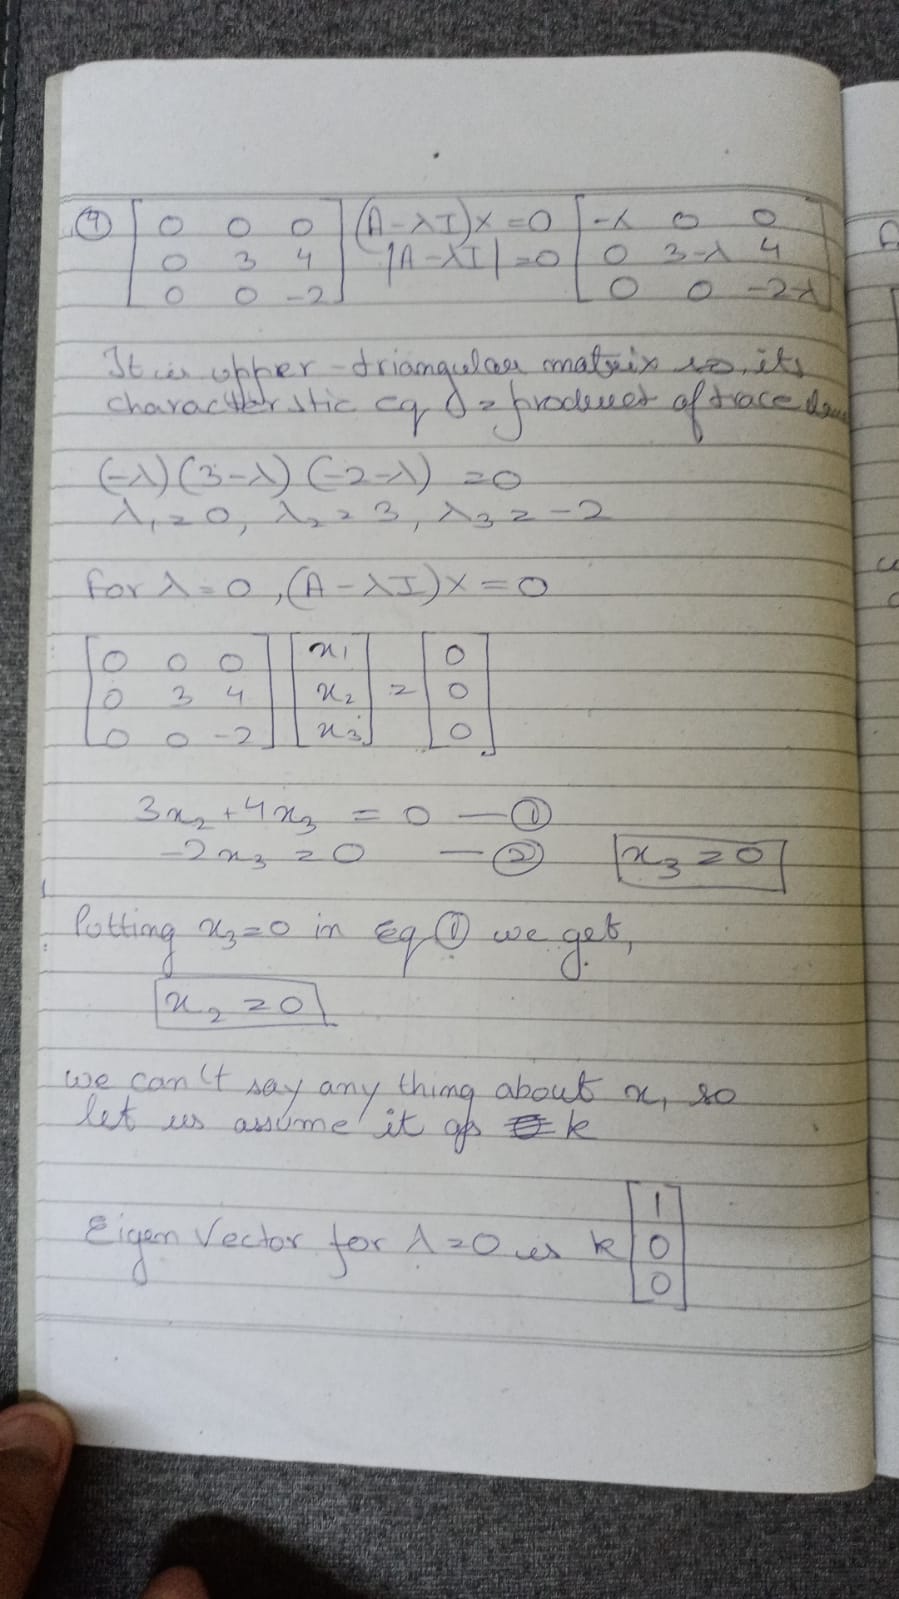 ④ [0 0 0 (A-λI)X=0 [-λ 0 0
0 3 4 |A-λI|=0 0 3-λ 4
0 0 -2] 0 0 -2-λ]
It is upper-triangular matrix so, its
characteristic eq = product of trace
(-λ)(3-λ)(-2-λ) =0
λ₁=0, λ₂=3, λ₃=-2
for λ=0, (A-λI)X=0
[0 0 0] [x₁] [0]
[0 3 4] [x₂] = [0]
[0 0 -2] [x₃] [0]
3x₂+4x₃ = 0 —①
-2x₃=0 —② x₃=0
Putting x₃=0 in Eq① we get,
x₂=0
we can't say any thing about x₁ so
let us assume it as k
Eigen Vector for λ=0 is k [1
0
0]